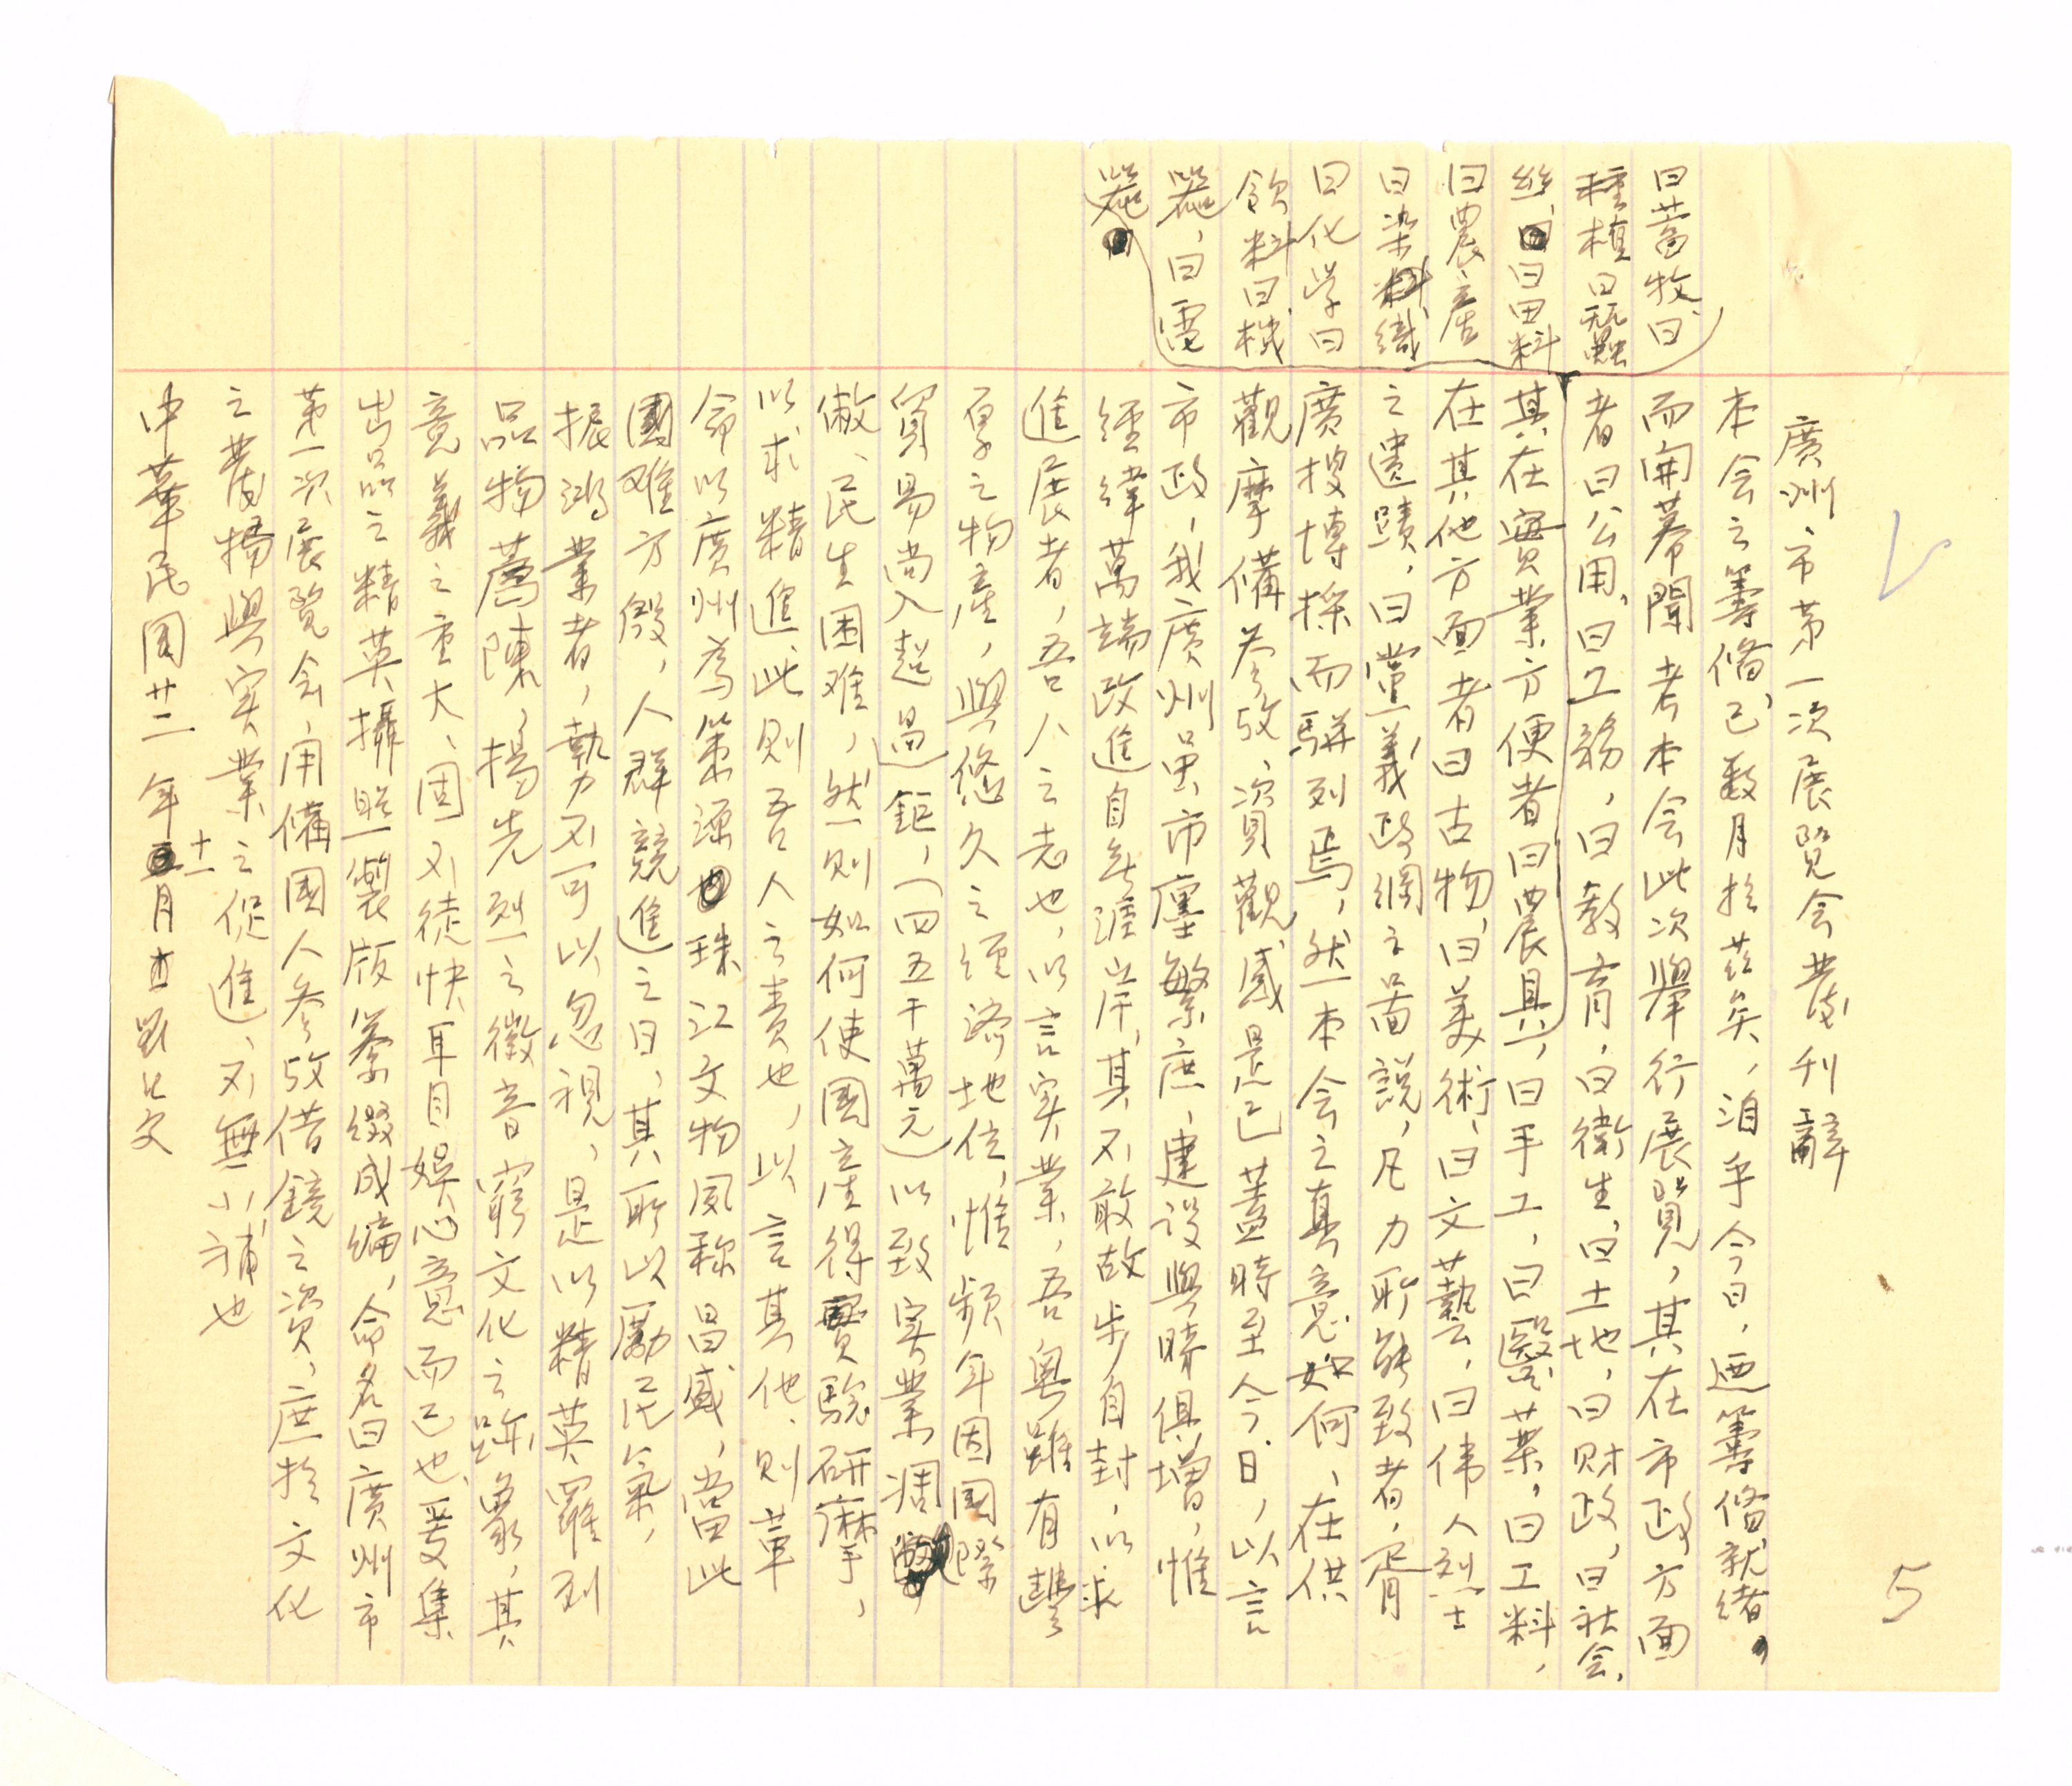 廣州市第一次展覽会発刊辭
本会之籌備已数月於茲矣，洎乎今日，迺籌备就緒，
而開幕聞考本会此次舉行展覽，其在市政方面
者曰公用，曰工務，曰教育，曰衛生，曰土地，曰財政，曰社会，
其在實業方便者曰農具，曰手工，曰醫業，曰工料，
在其他方面者曰古物，曰美術，曰文藝，曰偉人烈士
之遺蹟，曰黨義政綱之畵説，凡力所能致者，胥
廣搜博採而駢列焉，然本会之真意如何，在供
觀摩備参攷，資觀感是已蓋時至今日，以言
市政，我廣州虽市廛繁庶，建设與時俱增，惟
經緯萬端改進自無涯岸，其不敢故步自封，以求
進展者，吾人之志也，以言実業，吾粤雖有豐
厚之物產，與悠久之經濟地位，惟頻年因国際
貿易尚入超過鉅，（四五千萬元）以致实業凋敝
敝、民生困难，然則如何使國產得實驗研摩，
以求精進，此則吾人之责也，以言其他，則革
命以廣州為策源，珠江文物夙称昌盛，當此
國难方殷，人群競進之日，其所以勵民氣，
振鴻業者，勢不可以忽視，是以精英羅列
品物薦陳，揚先烈之徽音窮文化之跡象，其
意義之重大，固不徒快耳目娛心意而已也，爰集
出品之精英攝照製版纂綴成编，命名曰廣州市
第一次展覽会，用備國人参攷借鏡之資，庶於文化
之發揚與实業之促進，不無小補也
中華民国廿二年十一月 劉紀文
曰蓄牧，曰
種植曰蠶
絲，曰田料
曰農產
曰染織
曰化学曰
飲料曰機
器，曰電
器
5